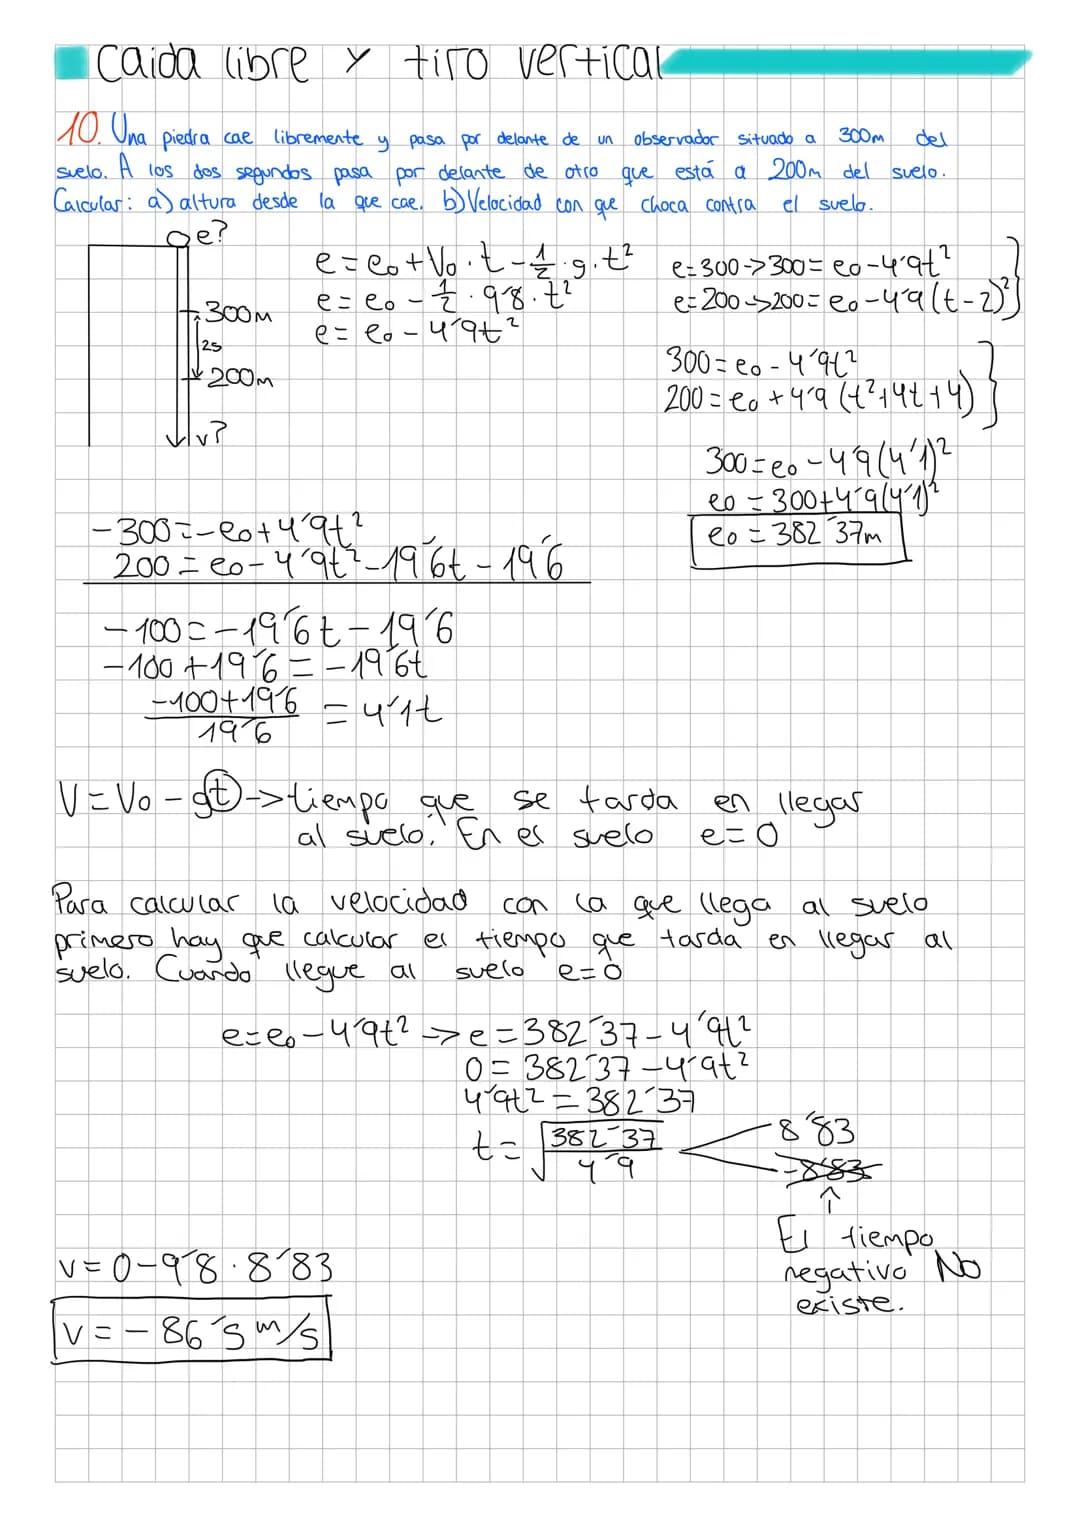 Caida libre y tiro vertical
10. Una piedra cae libremente y pasa por delante de un observador situado a 300m del
suelo. A los dos segundos pasa por delante de otro que está a 200m del suelo.
Calcular: a) altura desde la que cae. b) Velocidad con que choca contra el suelo.
e?
300m
2s
200m
v?
e = e₀ + V₀ · t - 1/2 · g · t²
e = e₀ - 1/2 · 9'8 · t²
e = e₀ - 4'9t²
e=300->300= e₀-4'9t²
e=200->200= e₀-4'9(t-2)²
300= e₀ - 4'9t²
200= e₀ + 4'9 (t²+4t+4)
300= e₀ - 4'9(4'1)²
e₀ = 300+4'9(4'1)²
e₀ = 382'37m
-300=-e₀+4'9t²
200= e₀-4'9t²-19'6t-19'6
-100=-19'6t-19'6
-100+19'6=-19'6t
-100+19'6/19'6 = 4'1t
V=V₀-gt->tiempo que se tarda en llegar
al suelo. En el suelo e=0
Para calcular la velocidad con la que llega al suelo
primero hay que calcular el tiempo que tarda en llegar al
suelo. Cuando llegue al suelo e=0
e=e₀-4'9t² -> e=382'37-4'9t²
0= 382'37-4'9t²
4'9t² = 382'37
t= √382'37/4'9
8'83
-8'83
El tiempo
negativo NO
existe.
v= 0-9'8 · 8'83
v = - 86'5 m/s